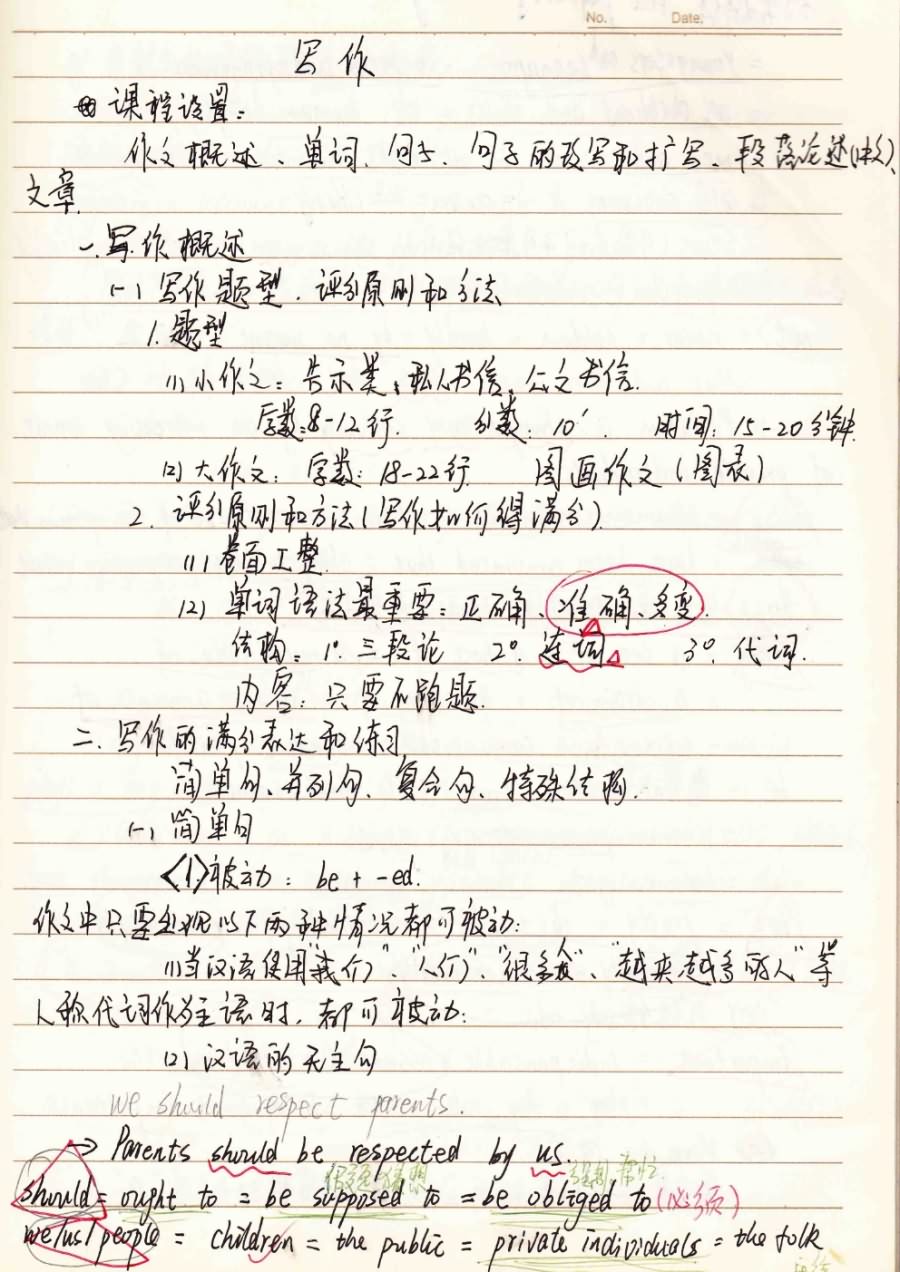 No.        Date.
写作
课程设置：
作文概述、单词、句子、句子的改写和扩写、段落论述(体久)、
文章.
一.写作概述
(一)写作题型.评分原则和方法
1.题型
(1)小作文：告示类,私人书信,公文书信.
字数:8-12行.   分数:10'   时间:15-20分钟.
(2)大作文：字数:18-22行.   图画作文(图表)
2.评分原则和方法(写作如何得满分)
(1)卷面工整.
(2)单词语法最重要：正确、准确、多变.
结构：1°.三段论   2°.连词   3°.代词.
内容：只要不跑题.
二.写作的满分表达和练习
简单句、并列句、复合句、特殊结构.
(一)简单句
<1>被动：be + -ed.
作文中只要出现以下两种情况都可被动:
(1)当汉语使用"我们"、"人们"、"很多人"、"越来越多的人"等
人称代词作为主语时,都可被动:
(2)汉语的无主句
we should respect parents.
→ Parents should be respected by us.
should = ought to = be supposed to = be obliged to (必须)
we/us/people = children = the public = private individuals = the folk